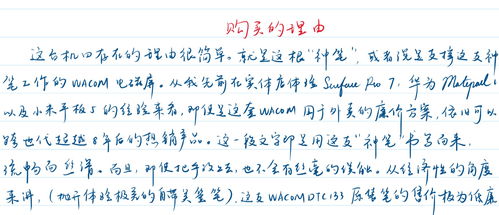 购买的理由
这台机口存在的理由很简单。就是这根“神笔”，或者说是支撑这支神
笔工作的WACOM电磁屏。从我先前在实体店体验Surface Pro 7，华为Matepad，
以及小米平板5的经验来看，即便是这套WACOM用于外卖的廉价方案，依旧可以
跨世代超越8年后的热销产品。这一段文字即是用这支“神笔”书写而来，
流畅而丝滑。而且，即便把手放上去，也不会有丝毫的误触。从经济性的角度
来讲，（抛开体验极差的自带签字笔），这支WACOM DTC133原售笔的售价极为低廉